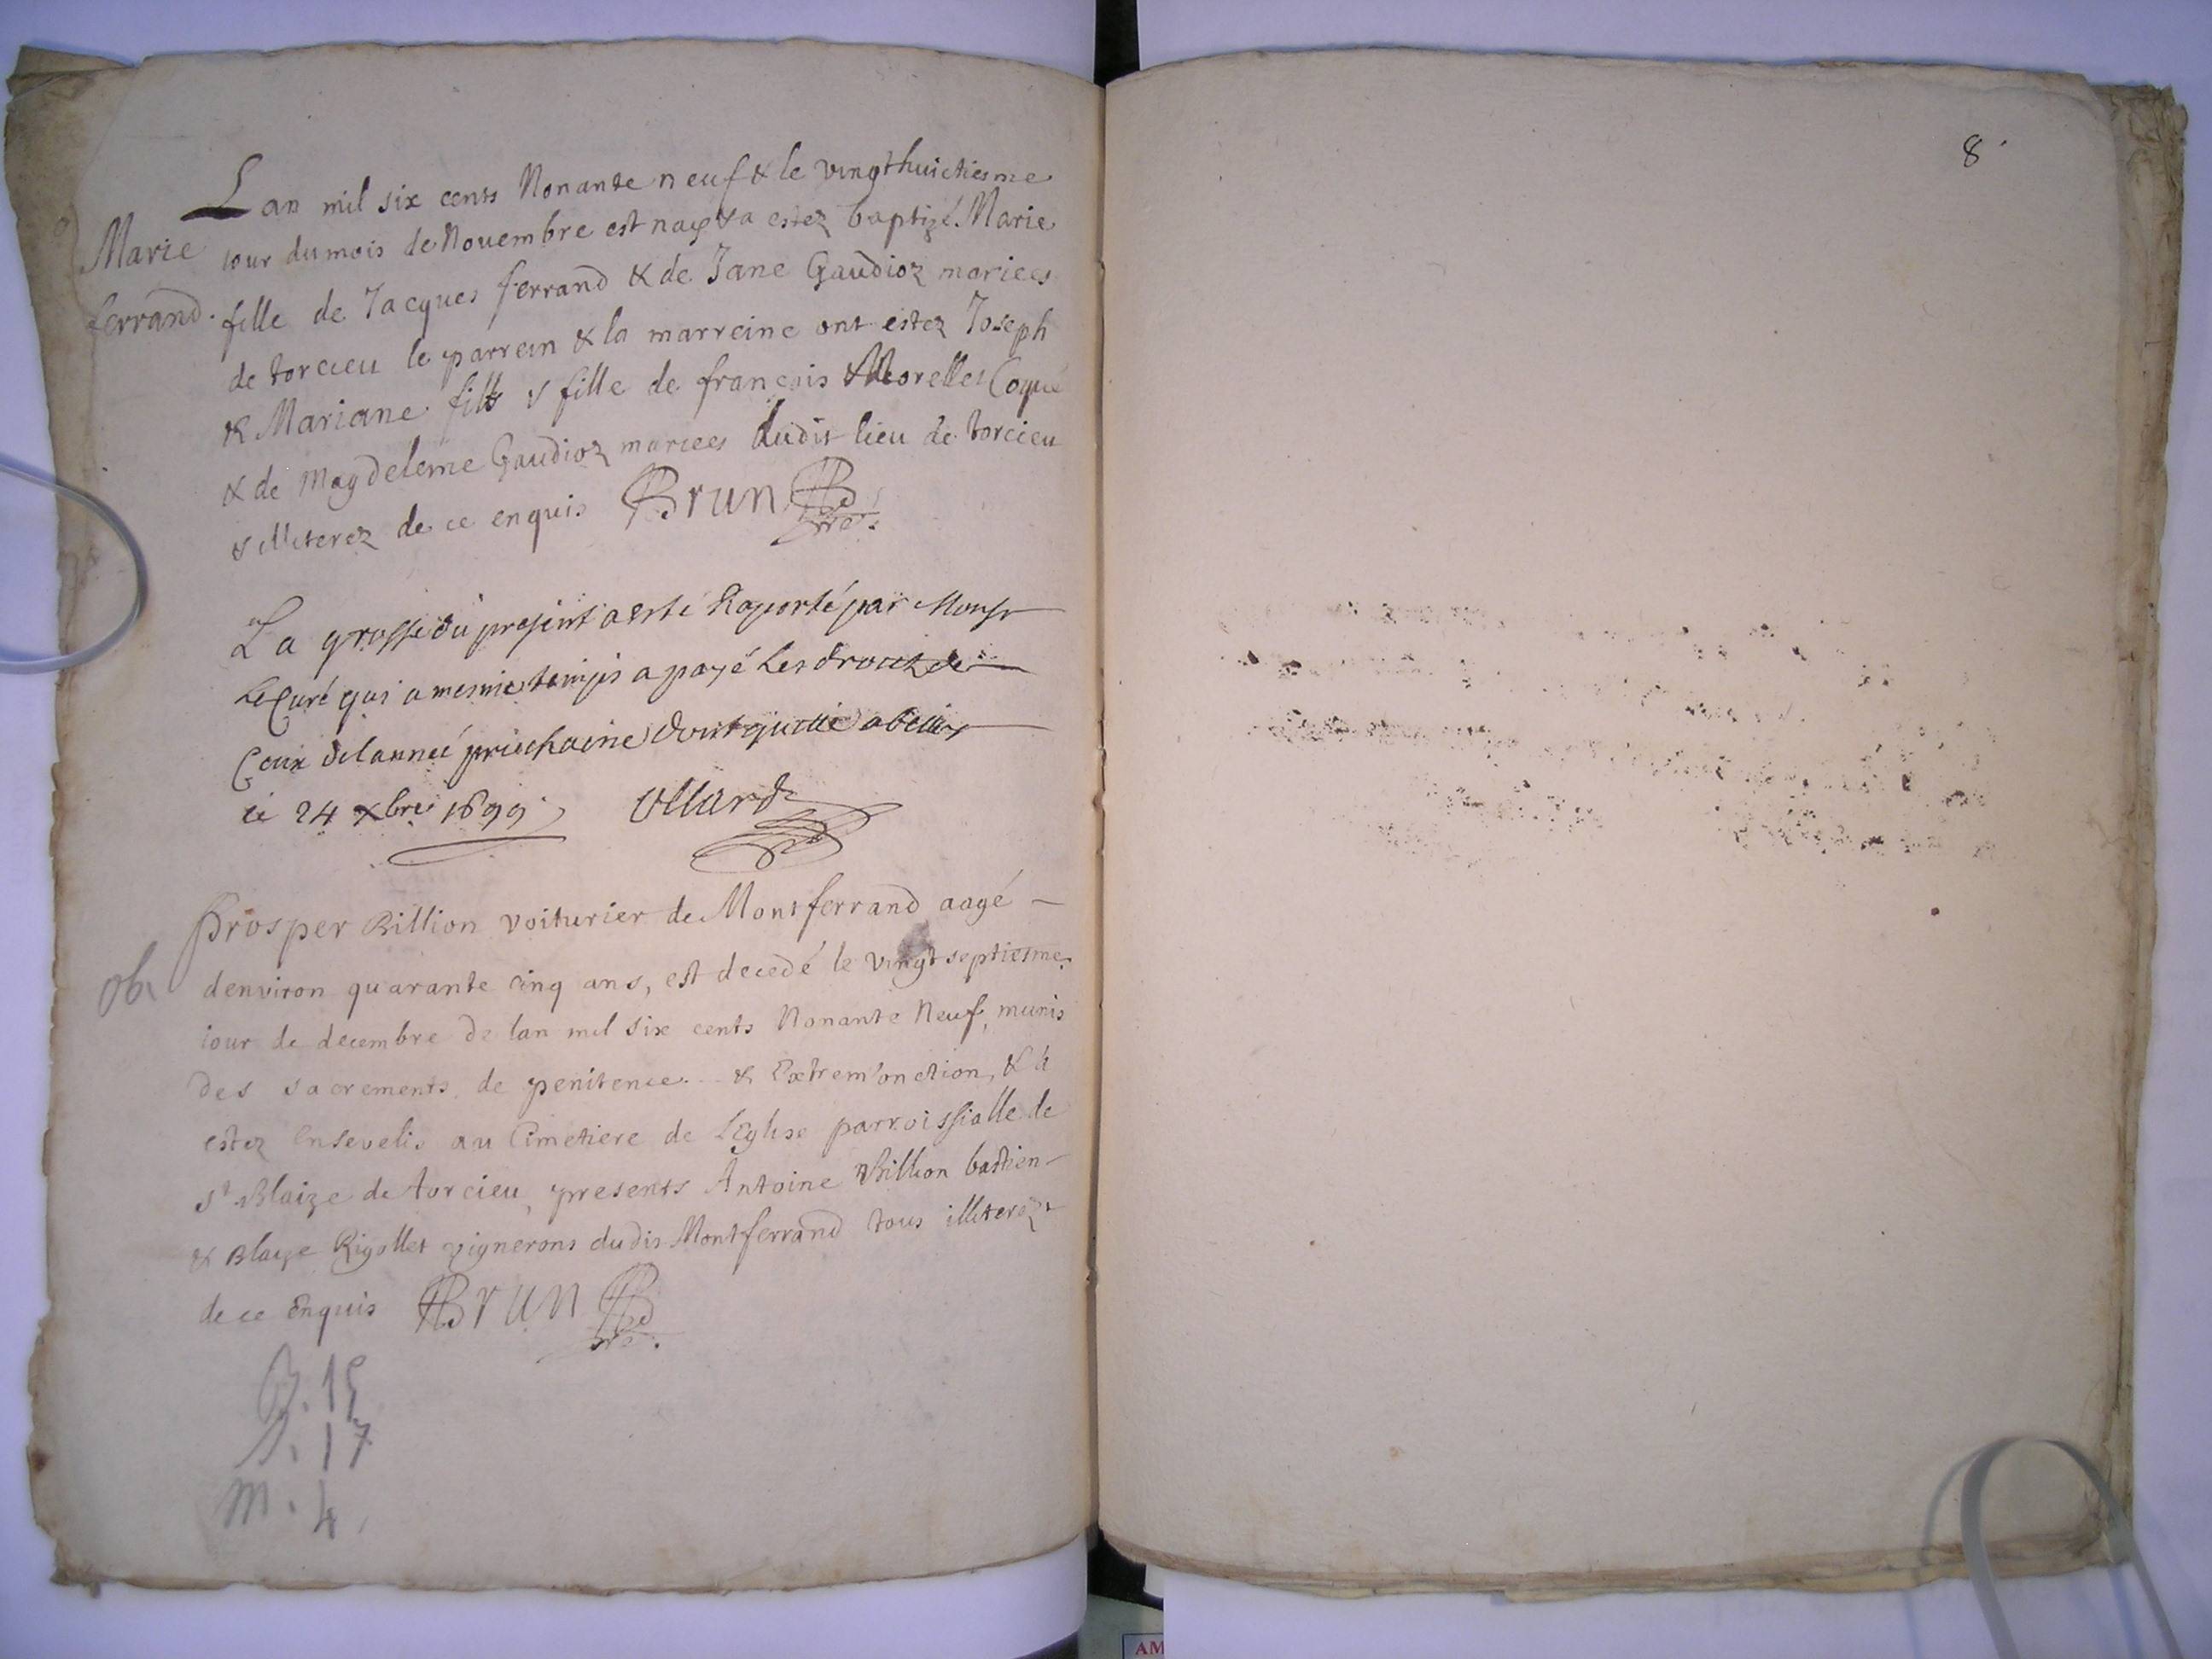 Lan mil six cents Nonante neuf & le vingthuictiesme
Marie
iour du mois de Nouembre est nay & a estez baptizé Marie
ferrand.
fille de Jacques ferrand & de Jane Gaudioz mariees
de torcieu le parrein & la marreine ont estez Joseph
& Mariane fils & fille de françois Morellet Coque
& de Magdeleine Gaudioz mariees dudit lieu de torcieu
& illiterez de ce enquis Brun
La grosse du present a esté Raporté par Monsr
Le Curé qui a mesme temps a payé Les droits de
Ceux de lannée prochaine dont quitté a belley
ce 24 xbre 1699
Prosper Billion voiturier de Montferrand aagé
ob.
denviron quarante cinq ans, est decedé le vingt septiesme
iour de decembre de lan mil six cents Nonante Neuf, munis
des sacrements de penitence & Extrem'onction, & a
estez Ensevelis au Cimetiere de LEglise parroissialle de
St Blaize de torcieu, presents Antoine Billion bastien
& Blaize Rigollet vignerons dudis Montferrand tous illiterez
de ce Enquis Brun
B. 15
S. 17
M. 4
8
AM